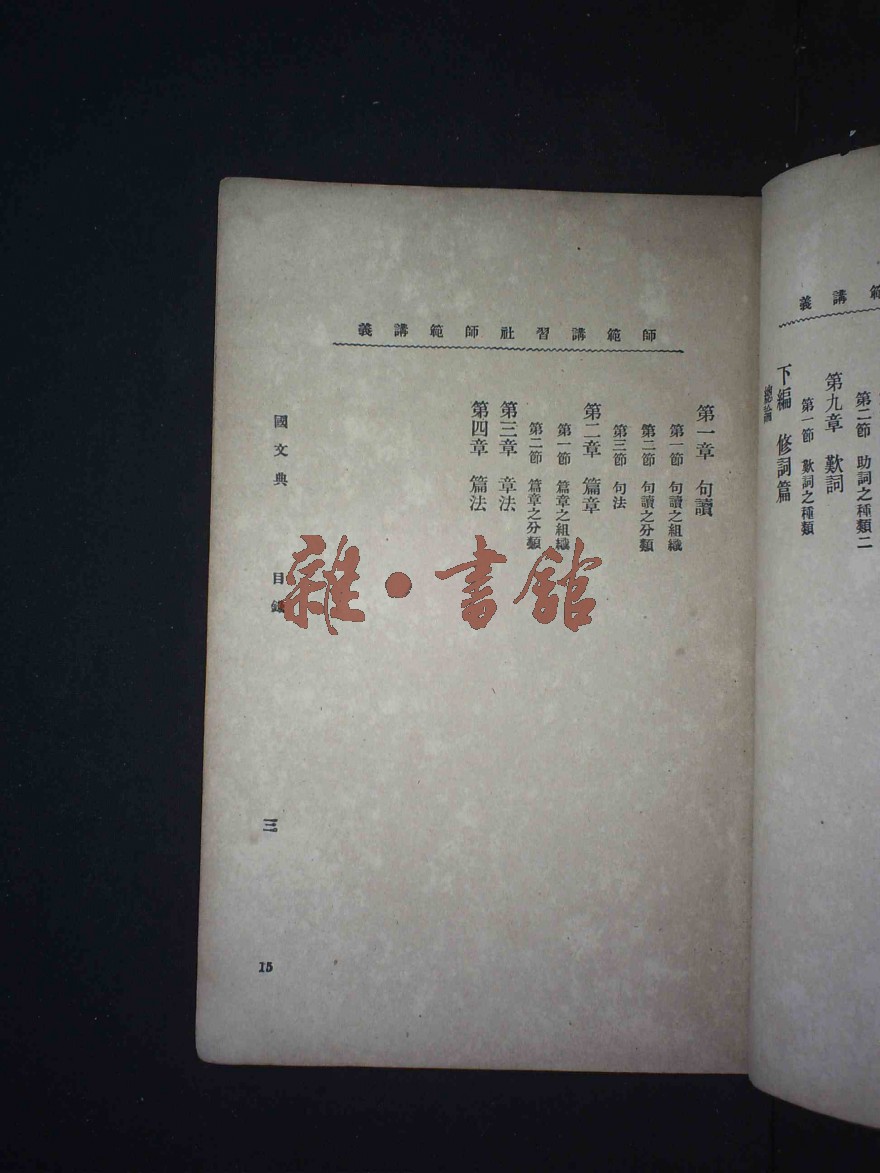 義講範
第二節 助詞之種類二
第九章 歎詞
第一節 歎詞之種類
下編 修詞篇
總論
師範講習社師範講義
第一章 句讀
第一節 句讀之組織
第二節 句讀之分類
第三節 句法
第二章 篇章
第一節 篇章之組織
第二節 篇章之分類
第三章 章法
第四章 篇法
國文典 目錄
三
15
雜·書館